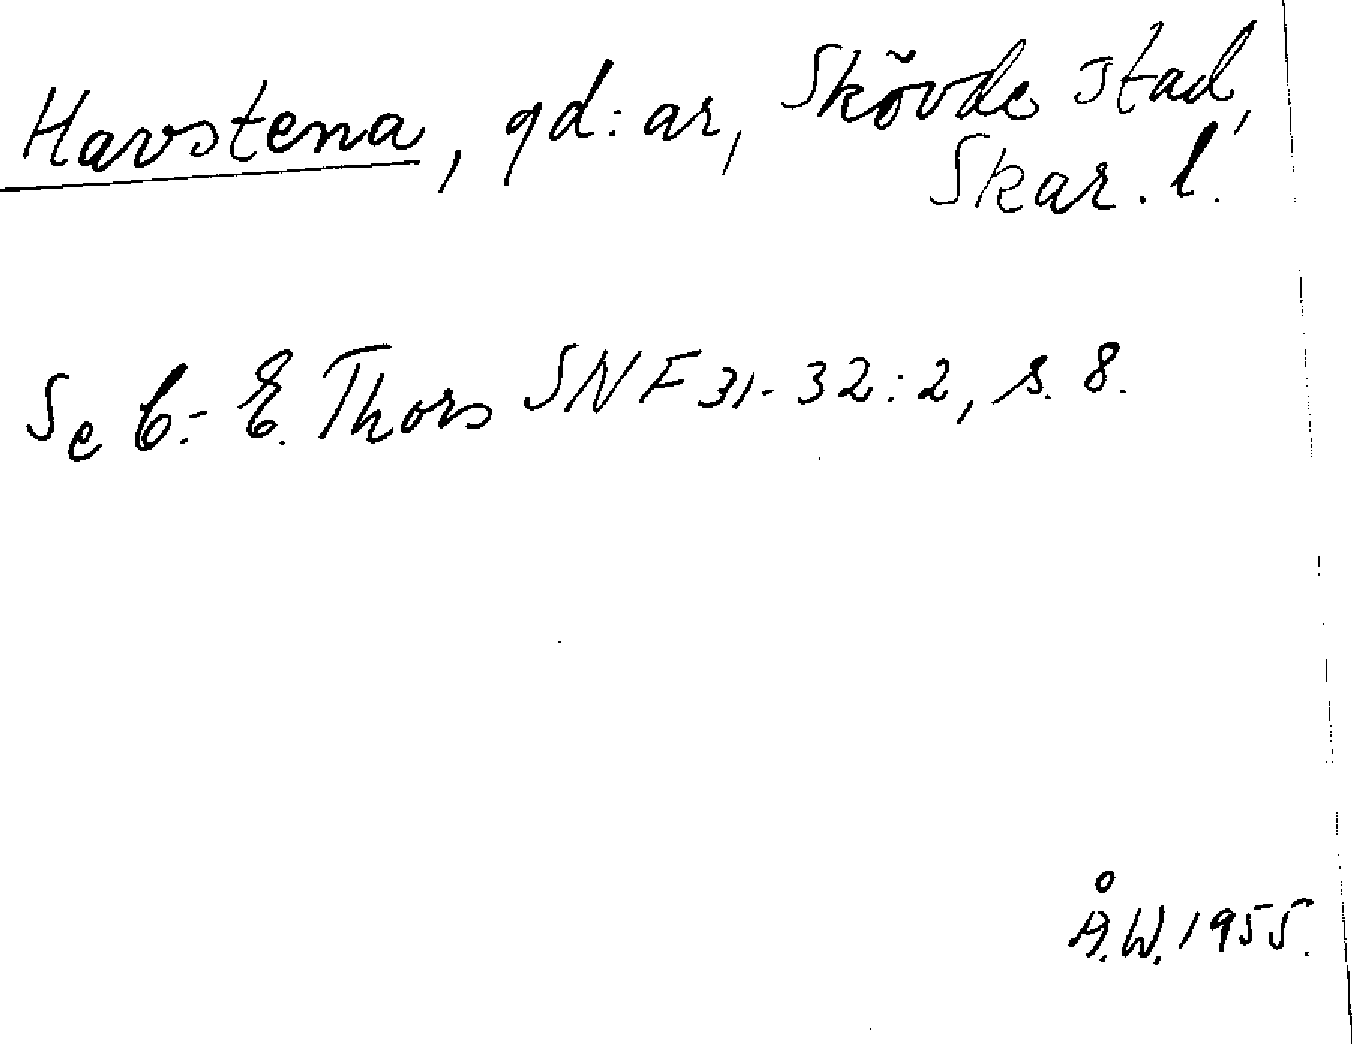 Havstena, gd:ar, Skövde stad,
Skar. l.
Se C.-E. Thors SNF 31-32:2, s. 8.
Å.W. 1955.